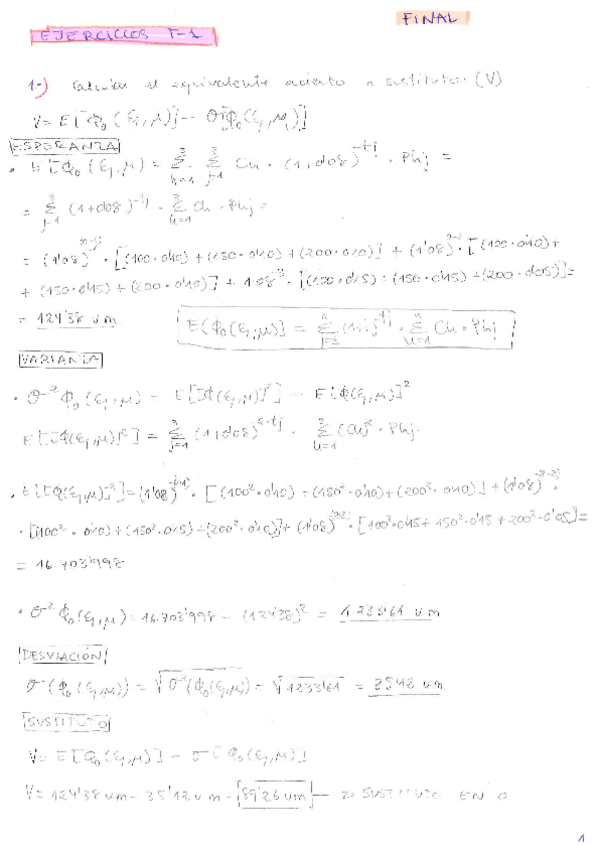 FINAL
EJERCICIOS T-1
1.-) Calcular el equivalente cierto o sustituto. (V)
V= E[Φ₀(ξ,μ)] - σ[Φ₀(ξ,μ)]
ESPERANZA
• E[Φ₀(ξ,μ)] = Σ Σ Cu · (1,008)^-tj · Phj =
= Σ (1+008)^-tj · Σ Cu · Phj =
= (1'08) · [(100·0'10) + (150·0'10) + (200·0'10)] + (1'08) · [(100·0'10) +
+ (150·0'15) + (200·0'10)] + 1'08 · [(100·0'15) + (150·0'15) + (200·0'05)] =
= 124'38 um
E(Φ₀(ξ,μ)] = Σ (1+i)^-tj · Σ Cu · Phj
VARIANZA
• σ² Φ₀(ξ,μ) = E[Φ(ξ,μ)]² - E[Φ(ξ,μ)]²
E[(Φ(ξ,μ)]²] = Σ (1,008)^-2·tj · Σ (Cu)² · Phj
• E[[Φ(ξ,μ)]²] = (1'08) · [(100²·0'10) + (150²·0'10) + (200²·0'10)] + (1'08) ·
· [100²·0'10) + (150²·0'15) + (200²·0'10)] + (1'08) · [100²·0'15 + 150²·0'15 + 200²·0'05] =
= 16.703'998
• σ² Φ₀(ξ,μ) = 16.703'998 - (124'38)² = 1.233'61 um
DESVIACIÓN
σ(Φ₀(ξ,μ)) = √σ²(Φ₀(ξ,μ)) = √1233'61 = 35'12 um
SUSTITUTO
V= E[Φ₀(ξ,μ)] - σ[Φ₀(ξ,μ)]
V= 124'38 um - 35'12 um = 89'26 um → SUSTITUTO EN 0
1